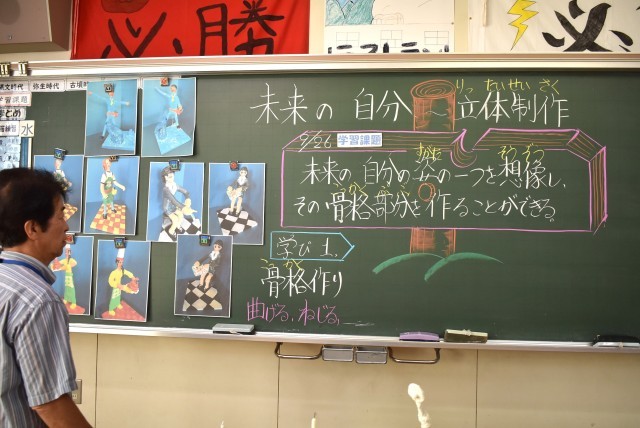 必勝
縄文時代 弥生時代 古墳時
学習課題
まとめ
水
りったいせいさく
未来の自分～立体制作
9/26 学習課題
すがた
そうぞう
未来の自分の姿の一つを想像し、
その骨格部分を作ることができる。
学び1
こっかく
骨格作り
曲げる、ねじる、